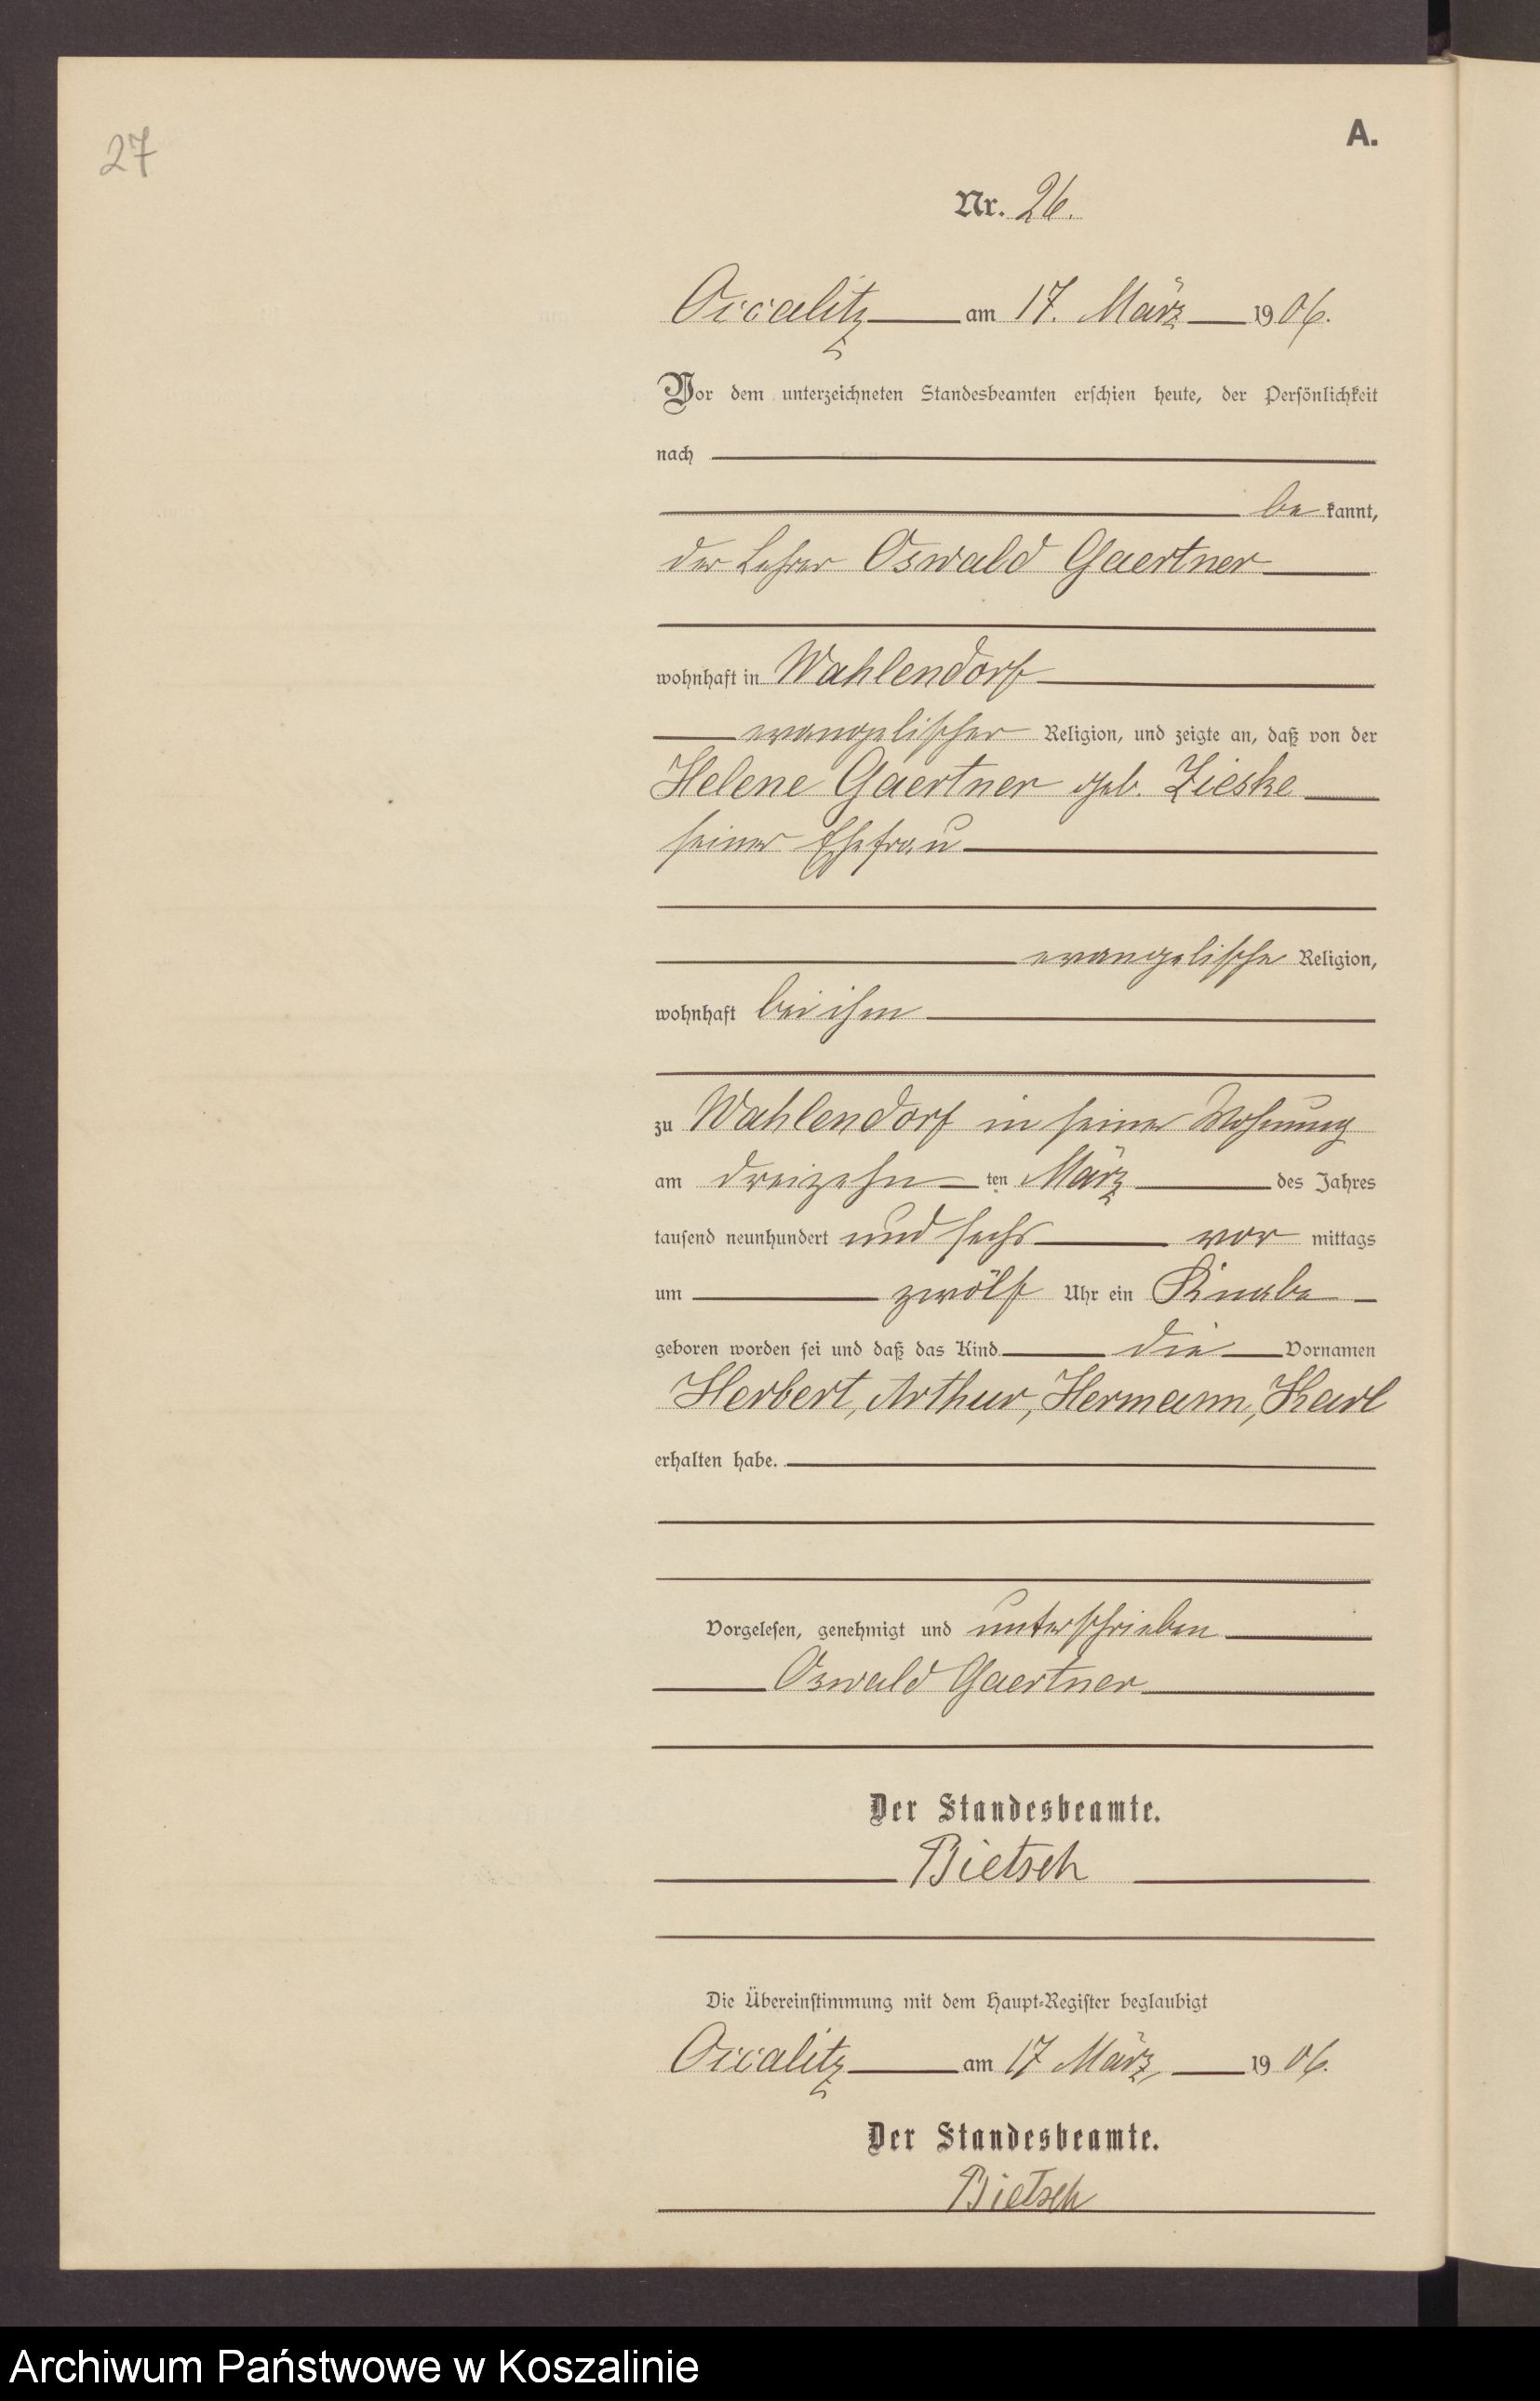 27
A.
Nr. 26.
Occalitz am 17. März 1906.
Vor dem unterzeichneten Standesbeamten erschien heute, der Persönlichkeit
nach
be kannt,
der Lehrer Oswald Gaertner
wohnhaft in Wahlendorf
evangelischer Religion, und zeigte an, daß von der
Helene Gaertner geb. Zieske
seiner Ehefrau
evangelische Religion,
wohnhaft bei ihm
zu Wahlendorf in seiner Wohnung
am dreizehn ten März des Jahres
tausend neunhundert und sechs vor mittags
um zwölf Uhr ein Knabe
geboren worden sei und daß das Kind die Vornamen
Herbert, Arthur, Hermann, Karl
erhalten habe.
Vorgelesen, genehmigt und unterschrieben
Oswald Gaertner
Der Standesbeamte.
Bietsch
Die Übereinstimmung mit dem Haupt-Register beglaubigt
Occalitz am 17 März, 1906.
Der Standesbeamte.
Bietsch
Archiwum Państwowe w Koszalinie